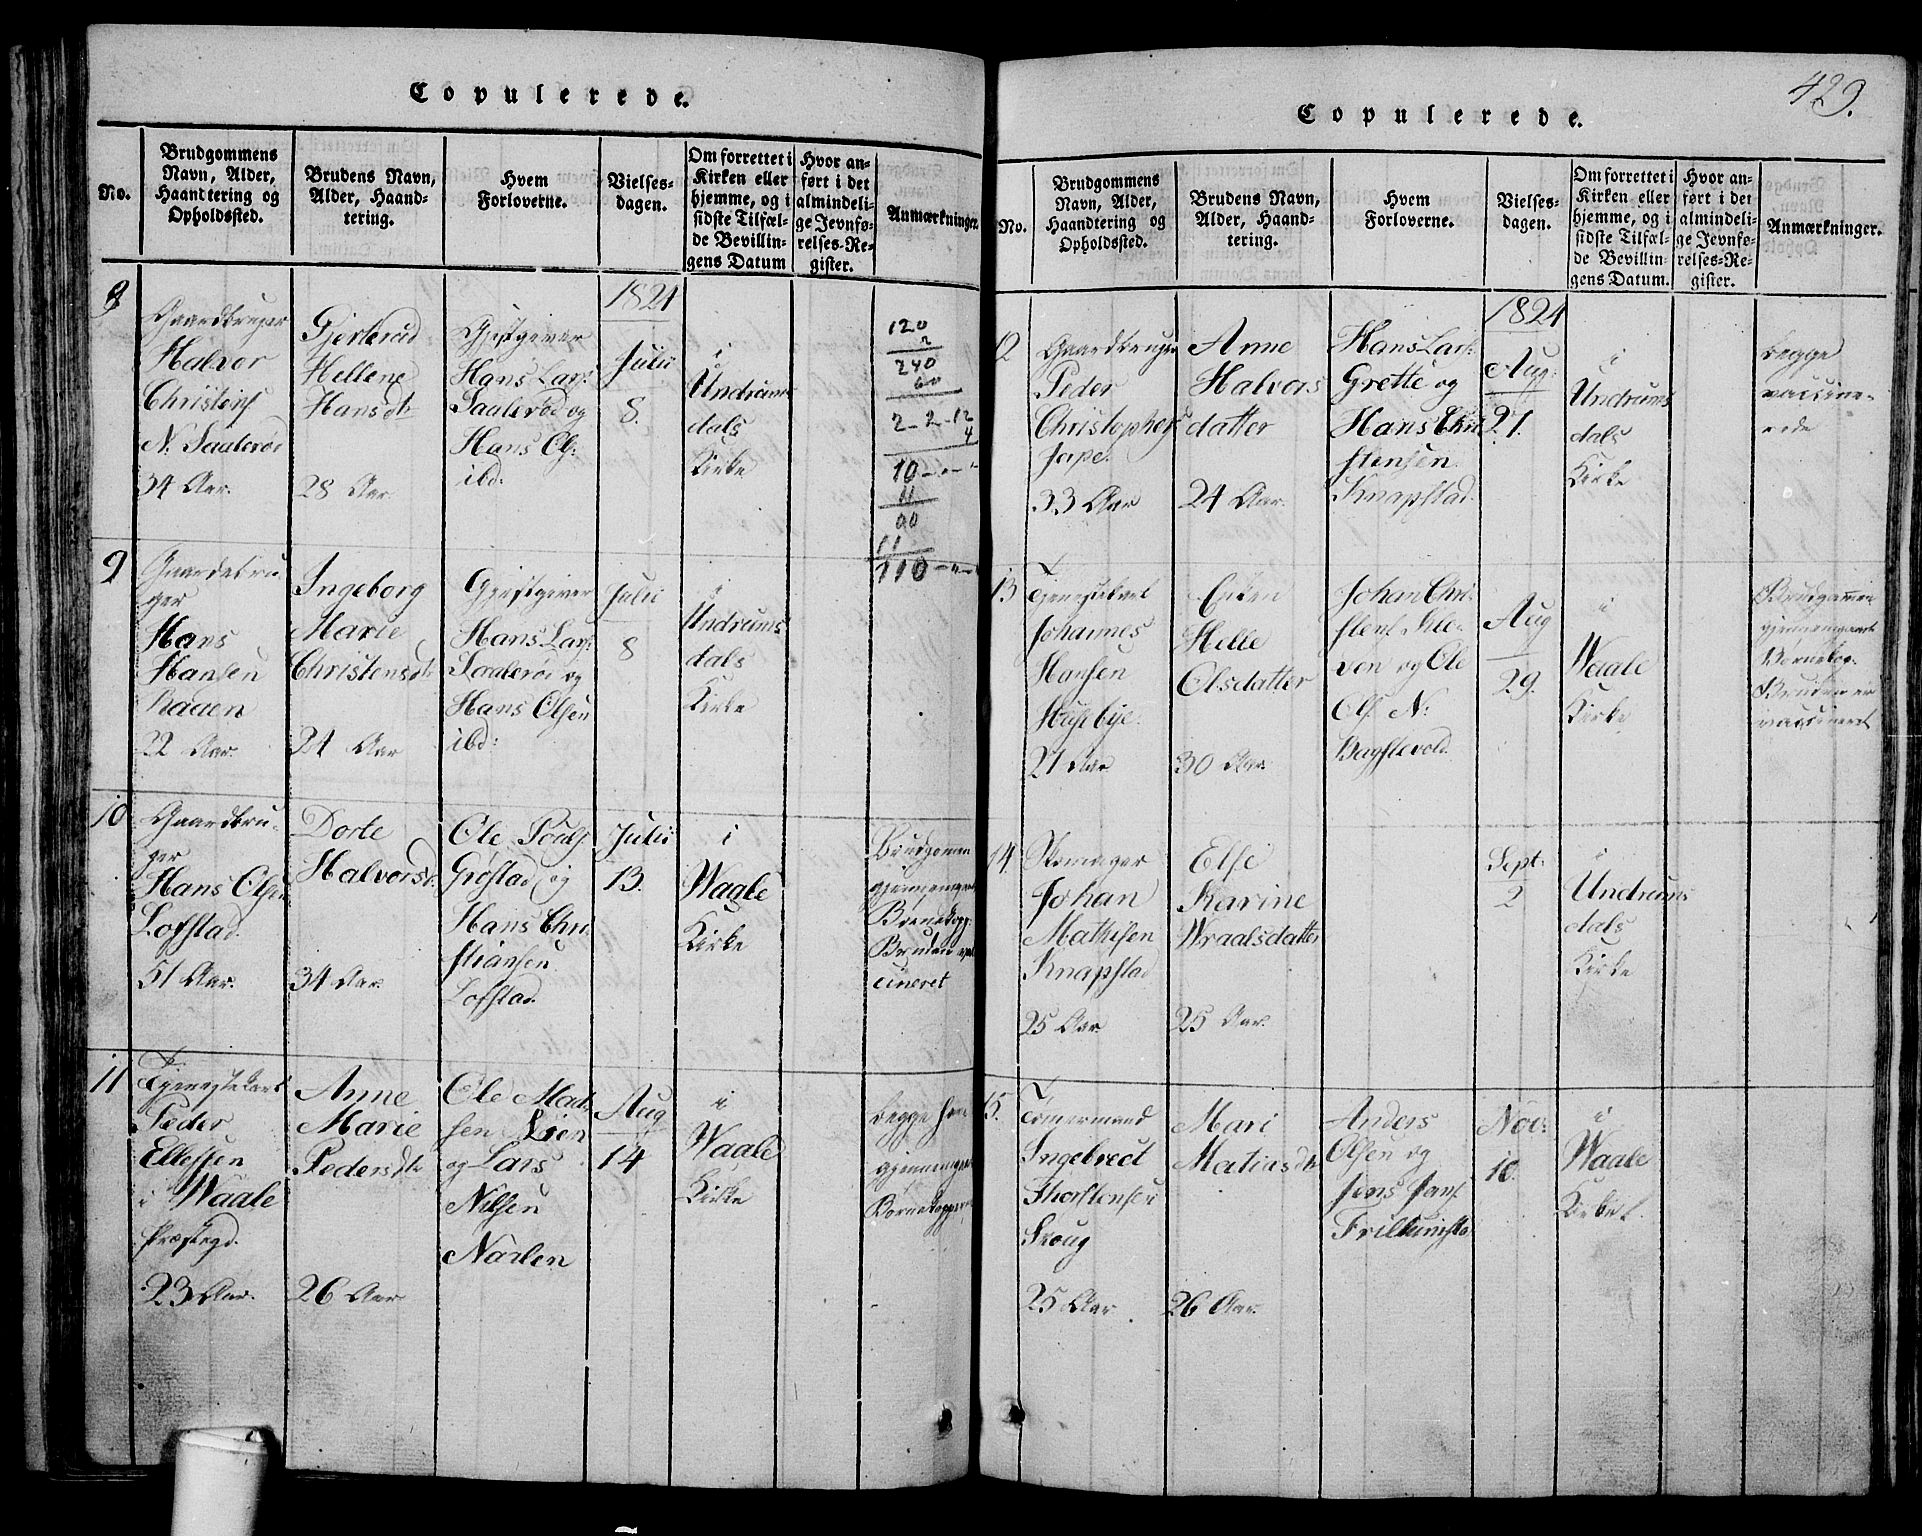 Copulerede.
No.
Brudgommens
Navn, Alder,
Haandtering og
Opholdssted.
Brudens Navn,
Alder, Haand-
tering.
Hvem
Forloverne.
Vielses-
dagen.
Om forrettet i
Kirken eller
hjemme, og i
sidste Tilfæl-
de Bevillin-
gens Datum
Hvor an-
ført i det
almindeli-
ge Jevnfø-
relses-Re-
gister.
Anmærkninger.
8
Gaardbruger
Halvor
Christens
N. Saalerød
34 Aar.
Gjertrud
Hellene
Hansdtr
28 Aar
Gjestgiver
Hans Lars:
Saalerød og
Hans Ols:
ibd:
1824
Julii
8.
i
Undrums
dals
Kirke
120
2
240
60
2-2-12
4
10
11
110
9
Gaardebru-
ger
Hans
Hansen
22 Aar
Ingeborg
Marie
Christensdtr
24 Aar
Gjestgiver
Hans Lars:
Saalerød og
Hans Olsen
ibd:
Julii
8
i
Undrums
dals
Kirke
10
Gaardbru-
ger
Hans Olsen
Lofstad
51 Aar.
Dorte
Halvorsdtr
34 Aar.
Ole Pouls
Grøstad og
Hans Chri
stiansen
Lofstad.
Julii
13.
i
Waale
Kirke
Brudgomen
gjennemgaaet
Børnekopp:
Bruden vac
cineret
11
Tjenestekarl
Peder
Ellefsen
i Waale
Præstegd.
23 Aar.
Anne
Marie
Pedersdtr
26 Aar
Ole Mad-
sen Lien
og Lars
Nilsen
Narlen
Aug
14
i
Waale
Kirke
begge har
gjennemgaaet
Børnekopper
429.
Copulerede.
No.
Brudgommens
Navn, Alder,
Haandtering og
Opholdssted.
Brudens Navn,
Alder, Haand-
tering.
Hvem
Forloverne.
Vielses-
dagen.
Om forrettet i
Kirken eller
hjemme, og i
sidste Tilfæl-
de Bevillin-
gens Datum.
Hvor an-
ført i det
almindeli-
ge Jevnfø-
relses-Re-
gister.
Anmærkninger.
12
Gaardbruger
Peder
Christophers
Jarpe.
33 Aar
Anne
Halvors
datter
24 Aar.
Hans Lars:
Grette og
Hans Chri
stensen
Knapstad
1824
Aug:
21.
i
Undrums
dals
Kirke
begge
vaccine-
rede
13
Tjenestekarl
Johannes
Hansen
Husebye.
21 Aar
Enken
Helle
Olsdatter
30 Aar.
Johan Chri
stens
ven og Ole
Ols: N:
Aug
29.
i
Waale
Kirke
Brudgommen
gjennemgaaet
Børnekop:
Bruden er
vaccineret
14
Skomager
Johan
Mathisen
Knapstad
25 Aar
Else
Karine
Wraalsdatter
25 Aar.
Sept:
2
i
Undrums
dals
Kirke
15.
Tømermand
Ingebrect
Thorstensen
Skoug
25 Aar
Mari
Matiasdtr
26 Aar.
Anders
Olsen og
Jens Jans
Nov:
10.
i
Waale
Kirke